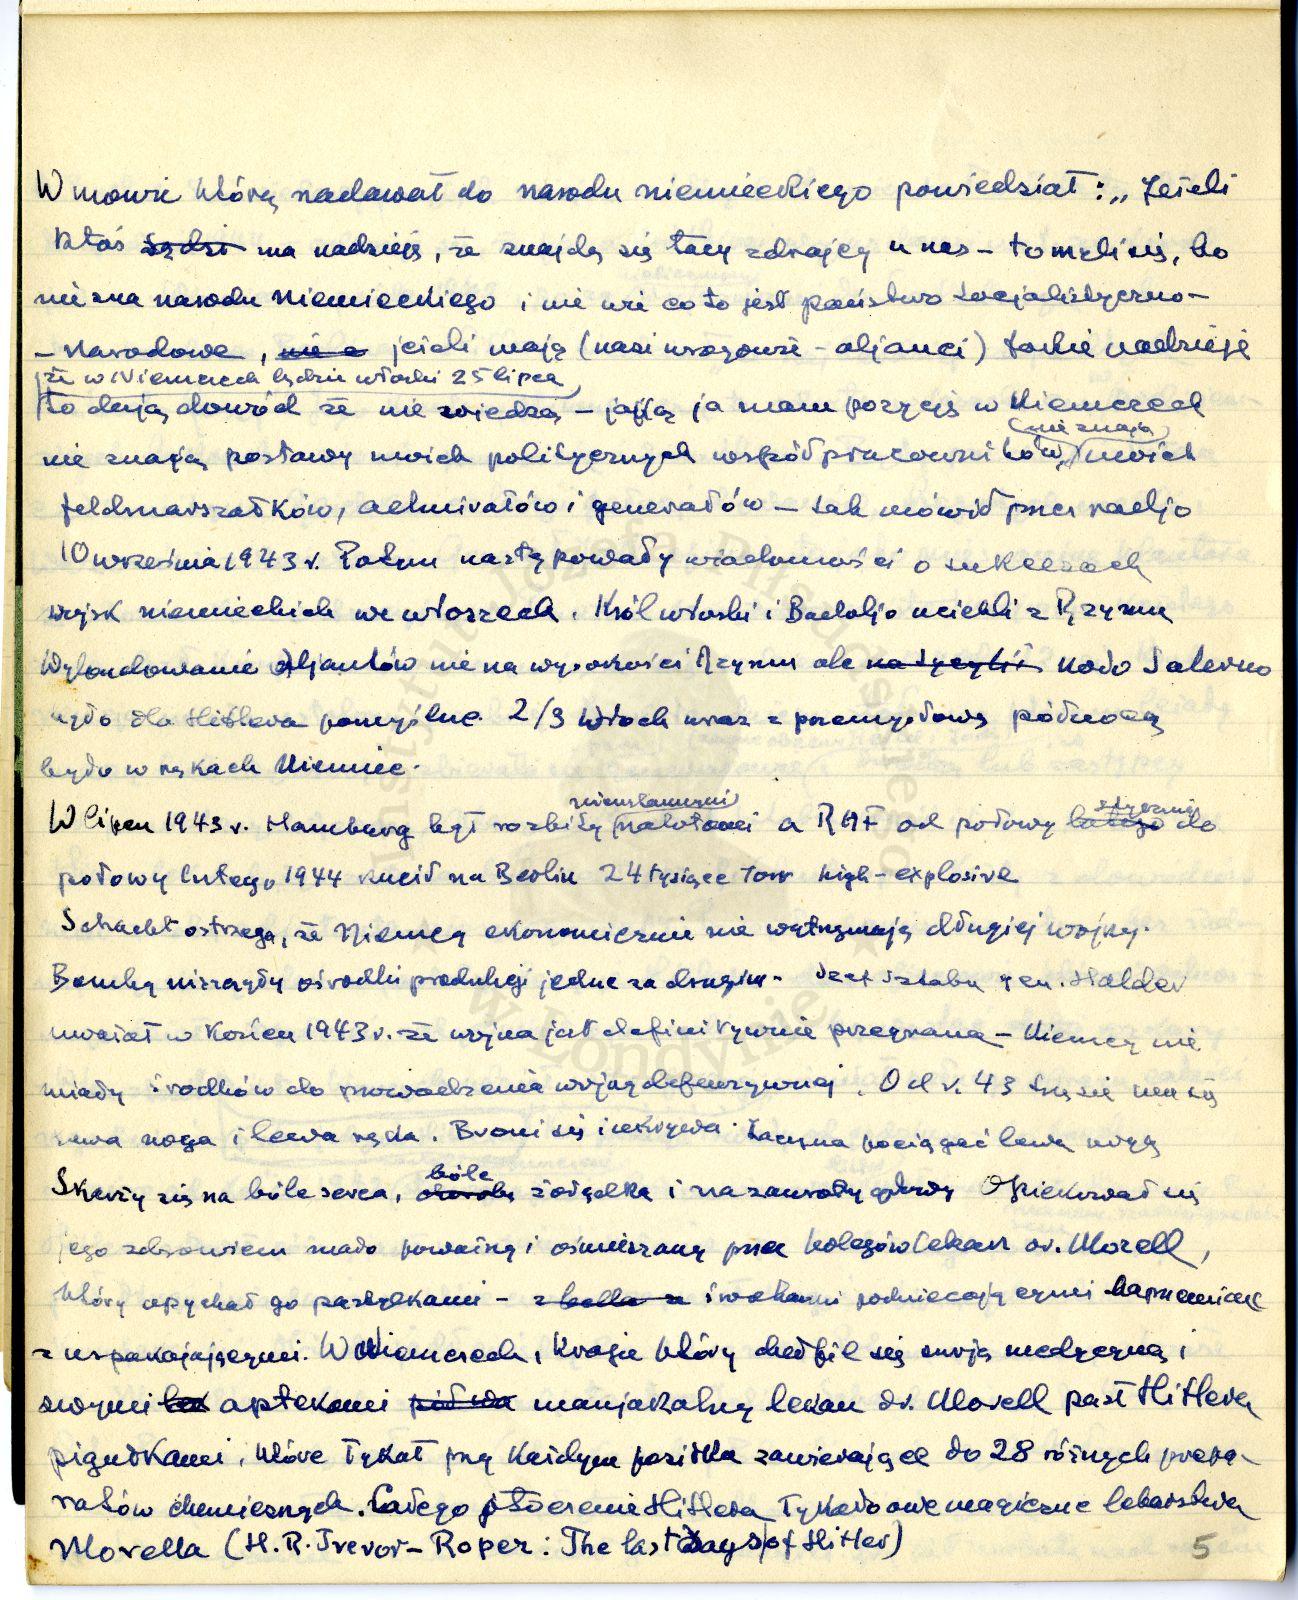 W mowie którą nadawał do narodu niemieckiego powiedział: „Jeżeli
ktoś sądzi ma nadzieję, że znajdą się tacy zdrajcy u nas – to myli się, bo
nie zna narodu niemieckiego i nie wie co to jest państwo socjalistyczno–
– narodowe, jeżeli mają (nasi wrogowie – aljanci) takie nadzieje
że w Niemczech będzie włoski 25 lipca
to dają dowód że nie wiedzą – jaką ja mam pozycję w Niemczech
nie znają
nie znają postawy moich politycznych współpracowników, moich
feldmarszałków, admirałów i generałów – tak mówił przez radjo
10 września 1943 r. Potem następowały wiadomości o sukcesach
wojsk niemieckich we Włoszech. Król włoski i Badoljo uciekli z Rzymu
Wylondowanie aljantów nie na wysokości Rzymu ale na Sycylii koło Salerno
było dla Hitlera pomyślne. 2/3 Włoch wraz z przemysłową północą
było w rękach Niemiec.
nieustannymi
W lipcu 1943 r. Hamburg był rozbity nalotami a RAF od połowy lutego do
stycznia
połowy lutego 1944 rzucił na Berlin 24 tysiące tonn high-explosive
Schacht ostrzega, że Niemcy ekonomicznie nie wytrzymają długiej wojny.
Bomby niszczyły ośrodki produkcji jedne za drugim. Szef sztabu gen. Halder
uważał w końcu 1943 r. że wojna jest definitywnie przegrana – Niemcy nie
miały środków do prowadzenia wojny defenzywnej. Od r. 43 trzęsie mu się
lewa noga i lewa ręka. Broni się i ukrywa. Zaczyna pociągać lewą nogą
bóle
Skarży się na bóle serca, choroby żołądka i na zawroty głowy Opiekował się
jego zdrowiem mało poważny i ośmieszany przez kolegów lekarz dr. Morell,
który wpychał go pastylkami – i podniecającymi naprzemian
z uspakajającymi. W Niemczech, kraju który chełpił się swoją medycyną i
swymi aptekami manjakalny lekarz dr. Morell pasł Hitlera
pigułkami, które łykał przy każdym posiłku zawierające do 28 różnych prepa-
ratów chemicznych. Całego otoczenie Hitlera łykało owe magiczne lekarstwa
Morella (H. R. Trevor – Roper: The last days of Hitler)
5
Instytut Józefa Piłsudskiego
w Londynie